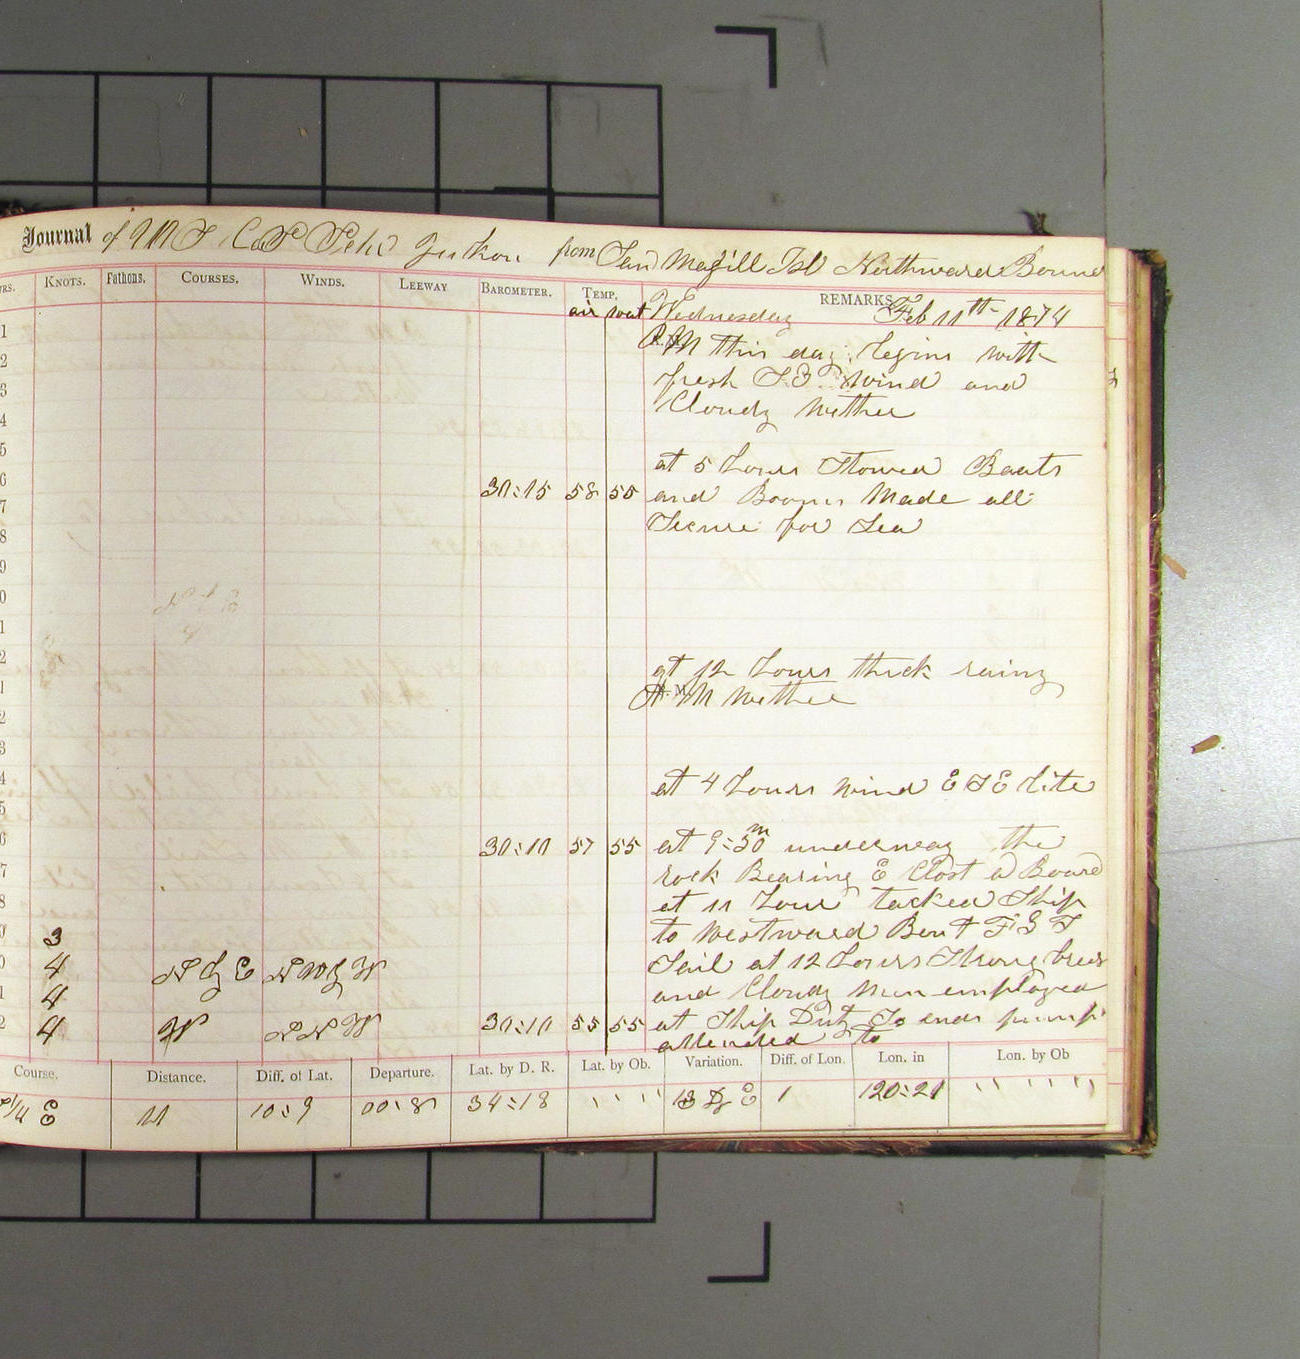 Journal of U.S.C.S. Schr Yukon from San Magill Isl Northward Bound
HRS. KNOTS. Fathoms. COURSES. WINDS. LEEWAY BAROMETER. TEMP. REMARKS
air wat Wednesday Feb 11th 1874
1 P M this day begins with
2 fresh S.E. wind and
3 Cloudy wether
4
5 at 5 hours Stowed Boats
6 30:15 58 55 and Booms Made all
7 Secure for Sea
8
9
0 N by E
1
2 at 12 hours thick rainy
1 A M wether
2
3
4 at 4 hours wind E S E lite
5
6 30:10 57 55 at 9:30m underway the
7 rock Bearing E Clost a Board
8 at 11 hour tacked Ship
9 3 to westward Bent F G T
0 4 N by E N W by W Sail at 12 hours Strong breas
1 4 and Cloudy men employed
2 4 W N N W 30:10 55 55 at Ship Duty So ends pump
attended to
Course. Distance. Diff. of Lat. Departure. Lat. by D. R. Lat. by Ob. Variation. Diff. of Lon. Lon. in Lon. by Ob
1/4 E 11 10:9 00:8 34:18 " " 13 Dg E 1 120:21 " "